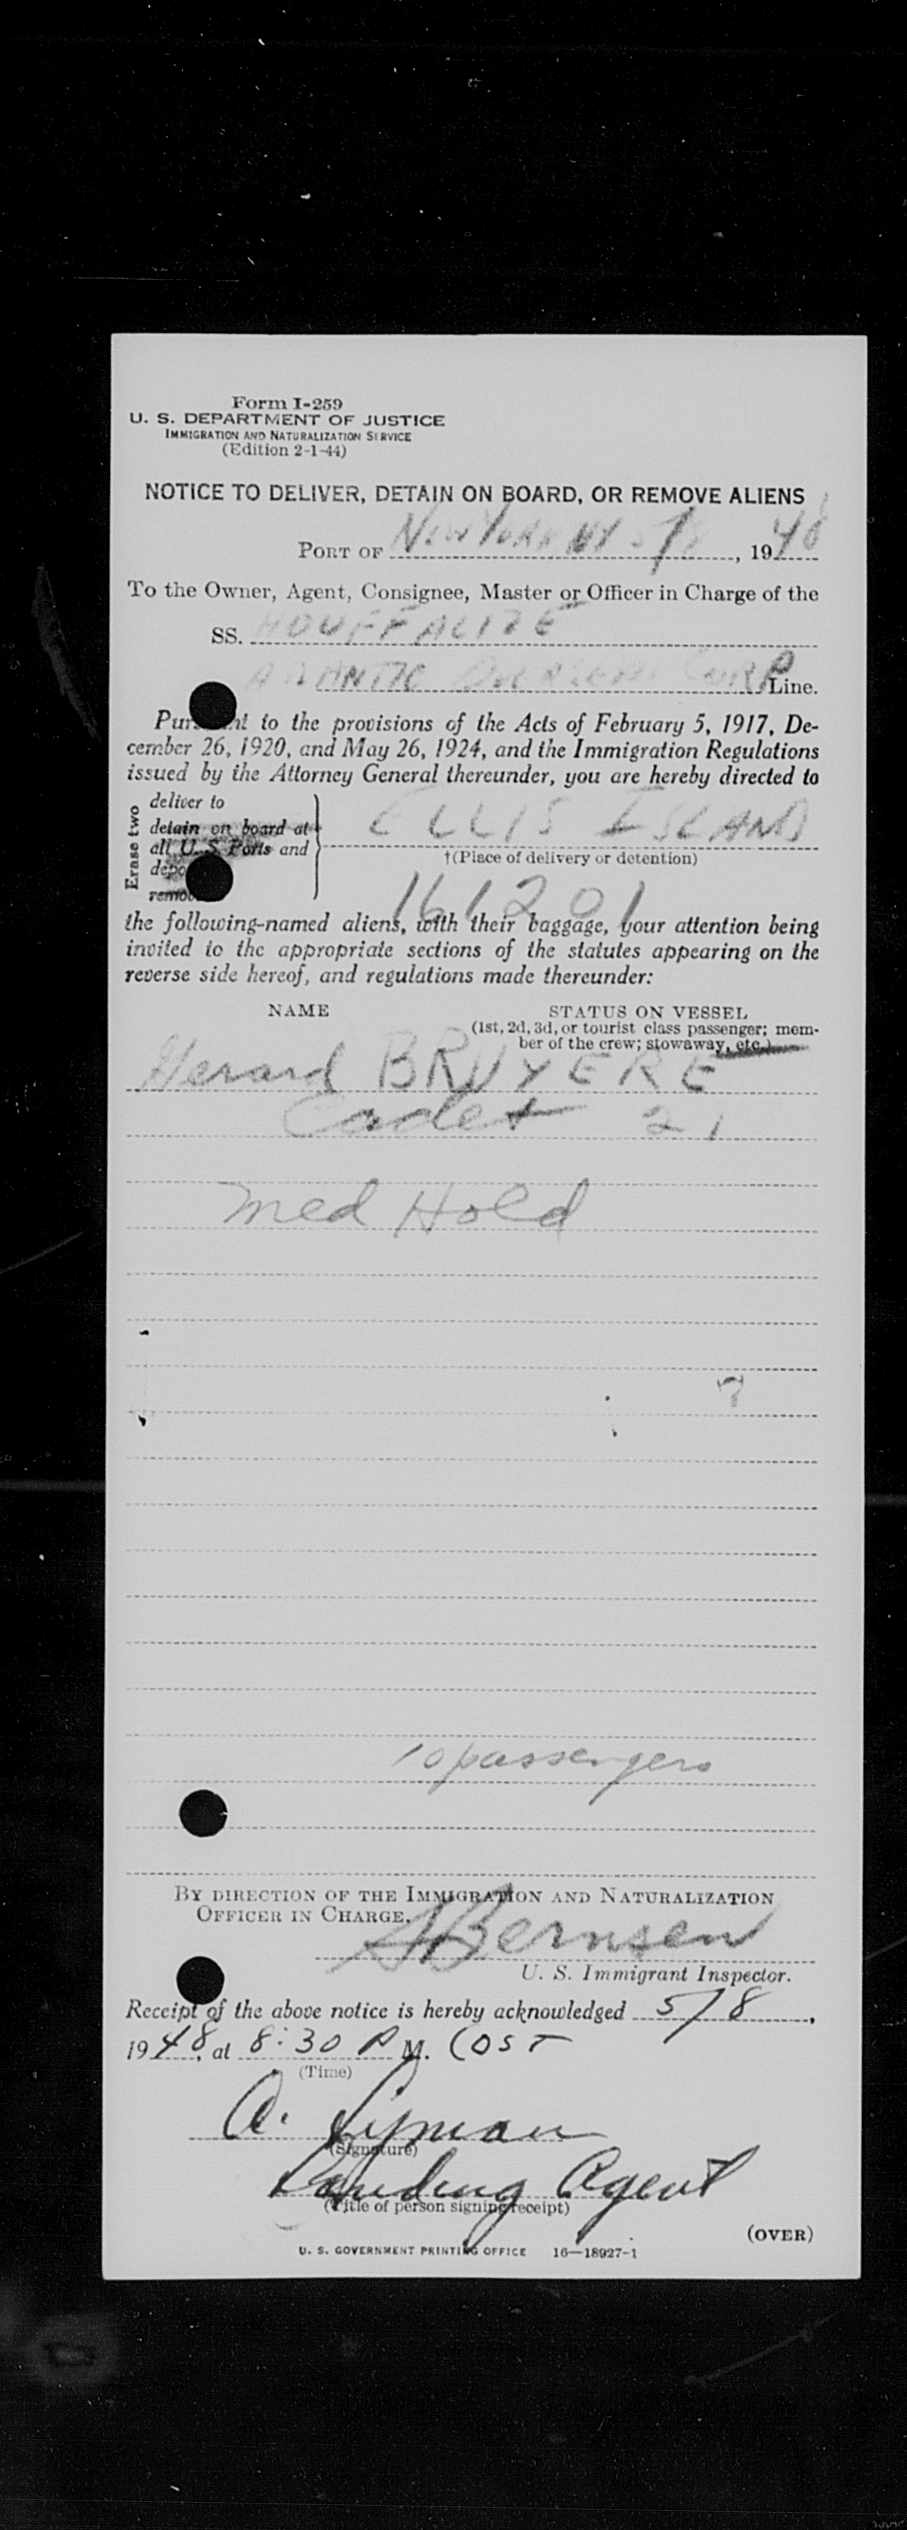 Form I-259
U. S. DEPARTMENT OF JUSTICE
IMMIGRATION AND NATURALIZATION SERVICE
(Edition 2-1-44)
NOTICE TO DELIVER, DETAIN ON BOARD, OR REMOVE ALIENS
PORT OF New York NY 5/8, 1948
To the Owner, Agent, Consignee, Master or Officer in Charge of the
SS. HOUFFALIZE
CORP Line.
Pursuant to the provisions of the Acts of February 5, 1917, De-
cember 26, 1920, and May 26, 1924, and the Immigration Regulations
issued by the Attorney General thereunder, you are hereby directed to
Erase two
deliver to
detain on board at
all U. S. Ports and
remove
ELLIS ISLAND
†(Place of delivery or detention)
161201
the following-named aliens, with their baggage, your attention being
invited to the appropriate sections of the statutes appearing on the
reverse side hereof, and regulations made thereunder:
NAME
STATUS ON VESSEL
(1st, 2d, 3d, or tourist class passenger; mem-
ber of the crew; stowaway, etc.)
BRUYERE
Cadet 21
Med Hold
10 passengers
BY DIRECTION OF THE IMMIGRATION AND NATURALIZATION
OFFICER IN CHARGE.
Bernsen
U. S. Immigrant Inspector.
Receipt of the above notice is hereby acknowledged 5/8,
1948, at 8:30 P M.
(Time)
A. Lipman
(Signature)
Landing Agent
(Title of person signing receipt)
(OVER)
U. S. GOVERNMENT PRINTING OFFICE 16—18927-1